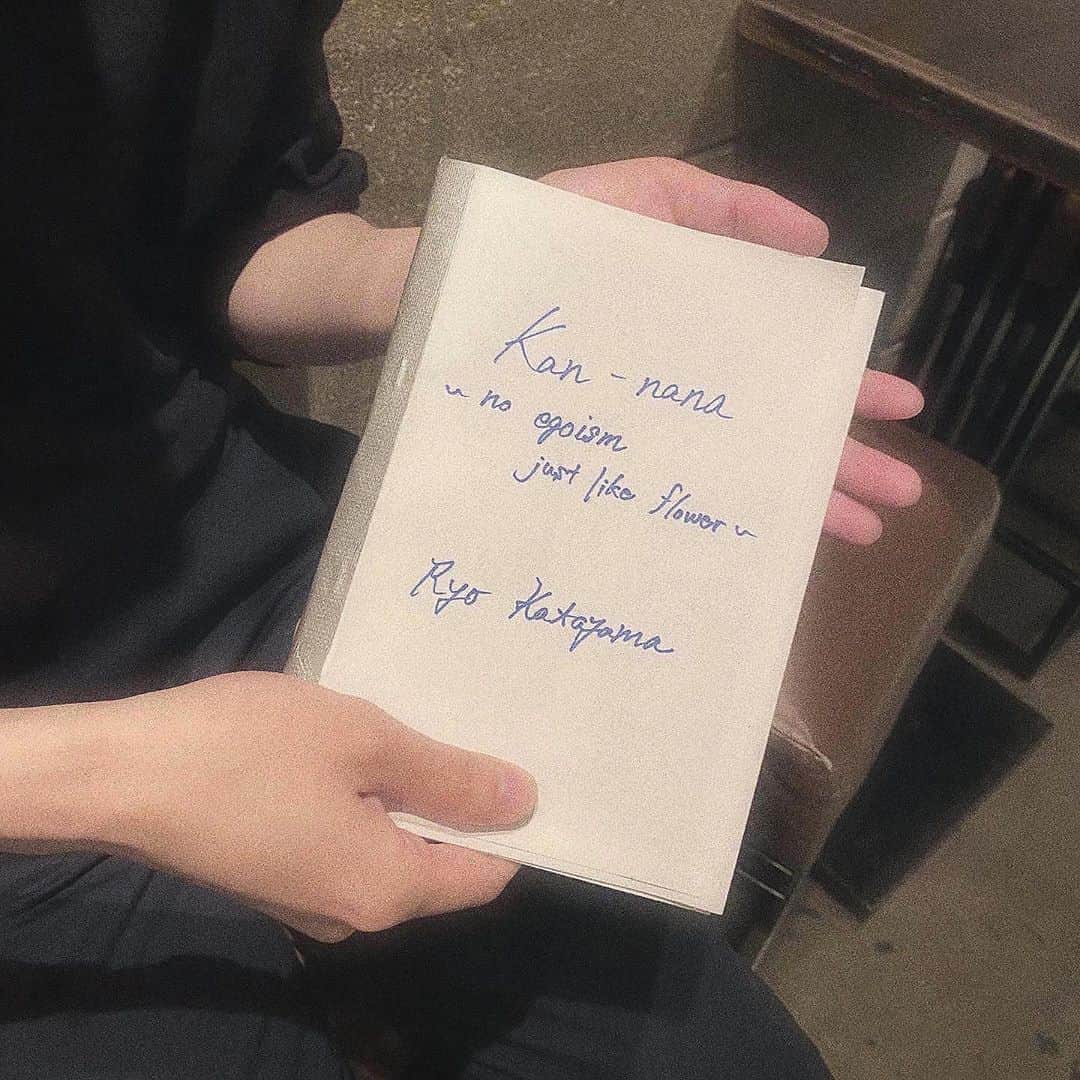 Kan-nana
~ no egoism
just like flower ~
Ryo Katayama